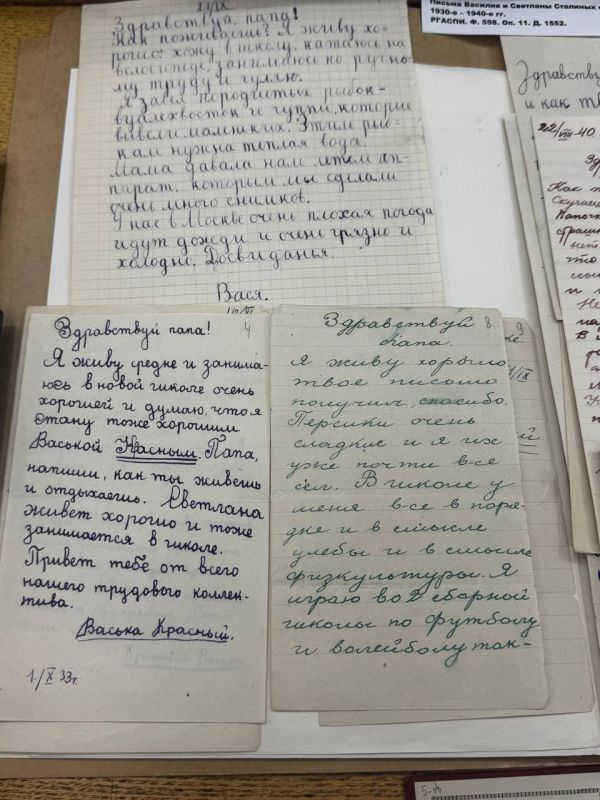 21/IX
Здравствуй, папа!
Как поживаешь? Я живу хо-
рошо: хожу в школу, катаюсь на
велосипеде, занимаюсь по ручно-
му труду и гуляю.
Я завел породистых рыбок-
вуалехвосток и гуппи, которые
вывели маленьких. Этим рыб-
кам нужна теплая вода.
Мама давала нам летом ап-
парат, которым мы сделали
очень много снимков.
У нас в Москве очень плохая погода
идут дожди и очень грязно и
холодно. Досвиданья.
Вася.
Письма Василия и Светланы Сталиных
1930-е – 1940-е гг.
РГАСПИ. Ф. 558. Оп. 11. Д. 1552.
Здравству
и как
22/VIII-40
Как
Скучаеш
Папочк
страшн
нет
что
и
Не
на
В
4
Здравствуй папа!
Я живу средне и занима-
юсь в новой школе очень
хорошей и думаю, что я
стану тоже хорошим
Васькой Красным. Папа,
напиши, как ты живешь
и отдыхаешь. Светлана
живет хорошо и тоже
занимается в школе.
Привет тебе от всего
нашего трудового коллек-
тива.
Васька Красный.
1./X 33г.
8
Здравствуй
папа.
Я живу хорошо
твое письмо
получил, спасибо.
Персики очень
сладкие и я их
уже почти все
съел. В школе у
меня все в поря-
дке и в смысле
учебы и в смысле
физкультуры. Я
играю во 2 сборной
школы по футболу
и волейболу так-
9
/IX
5-об